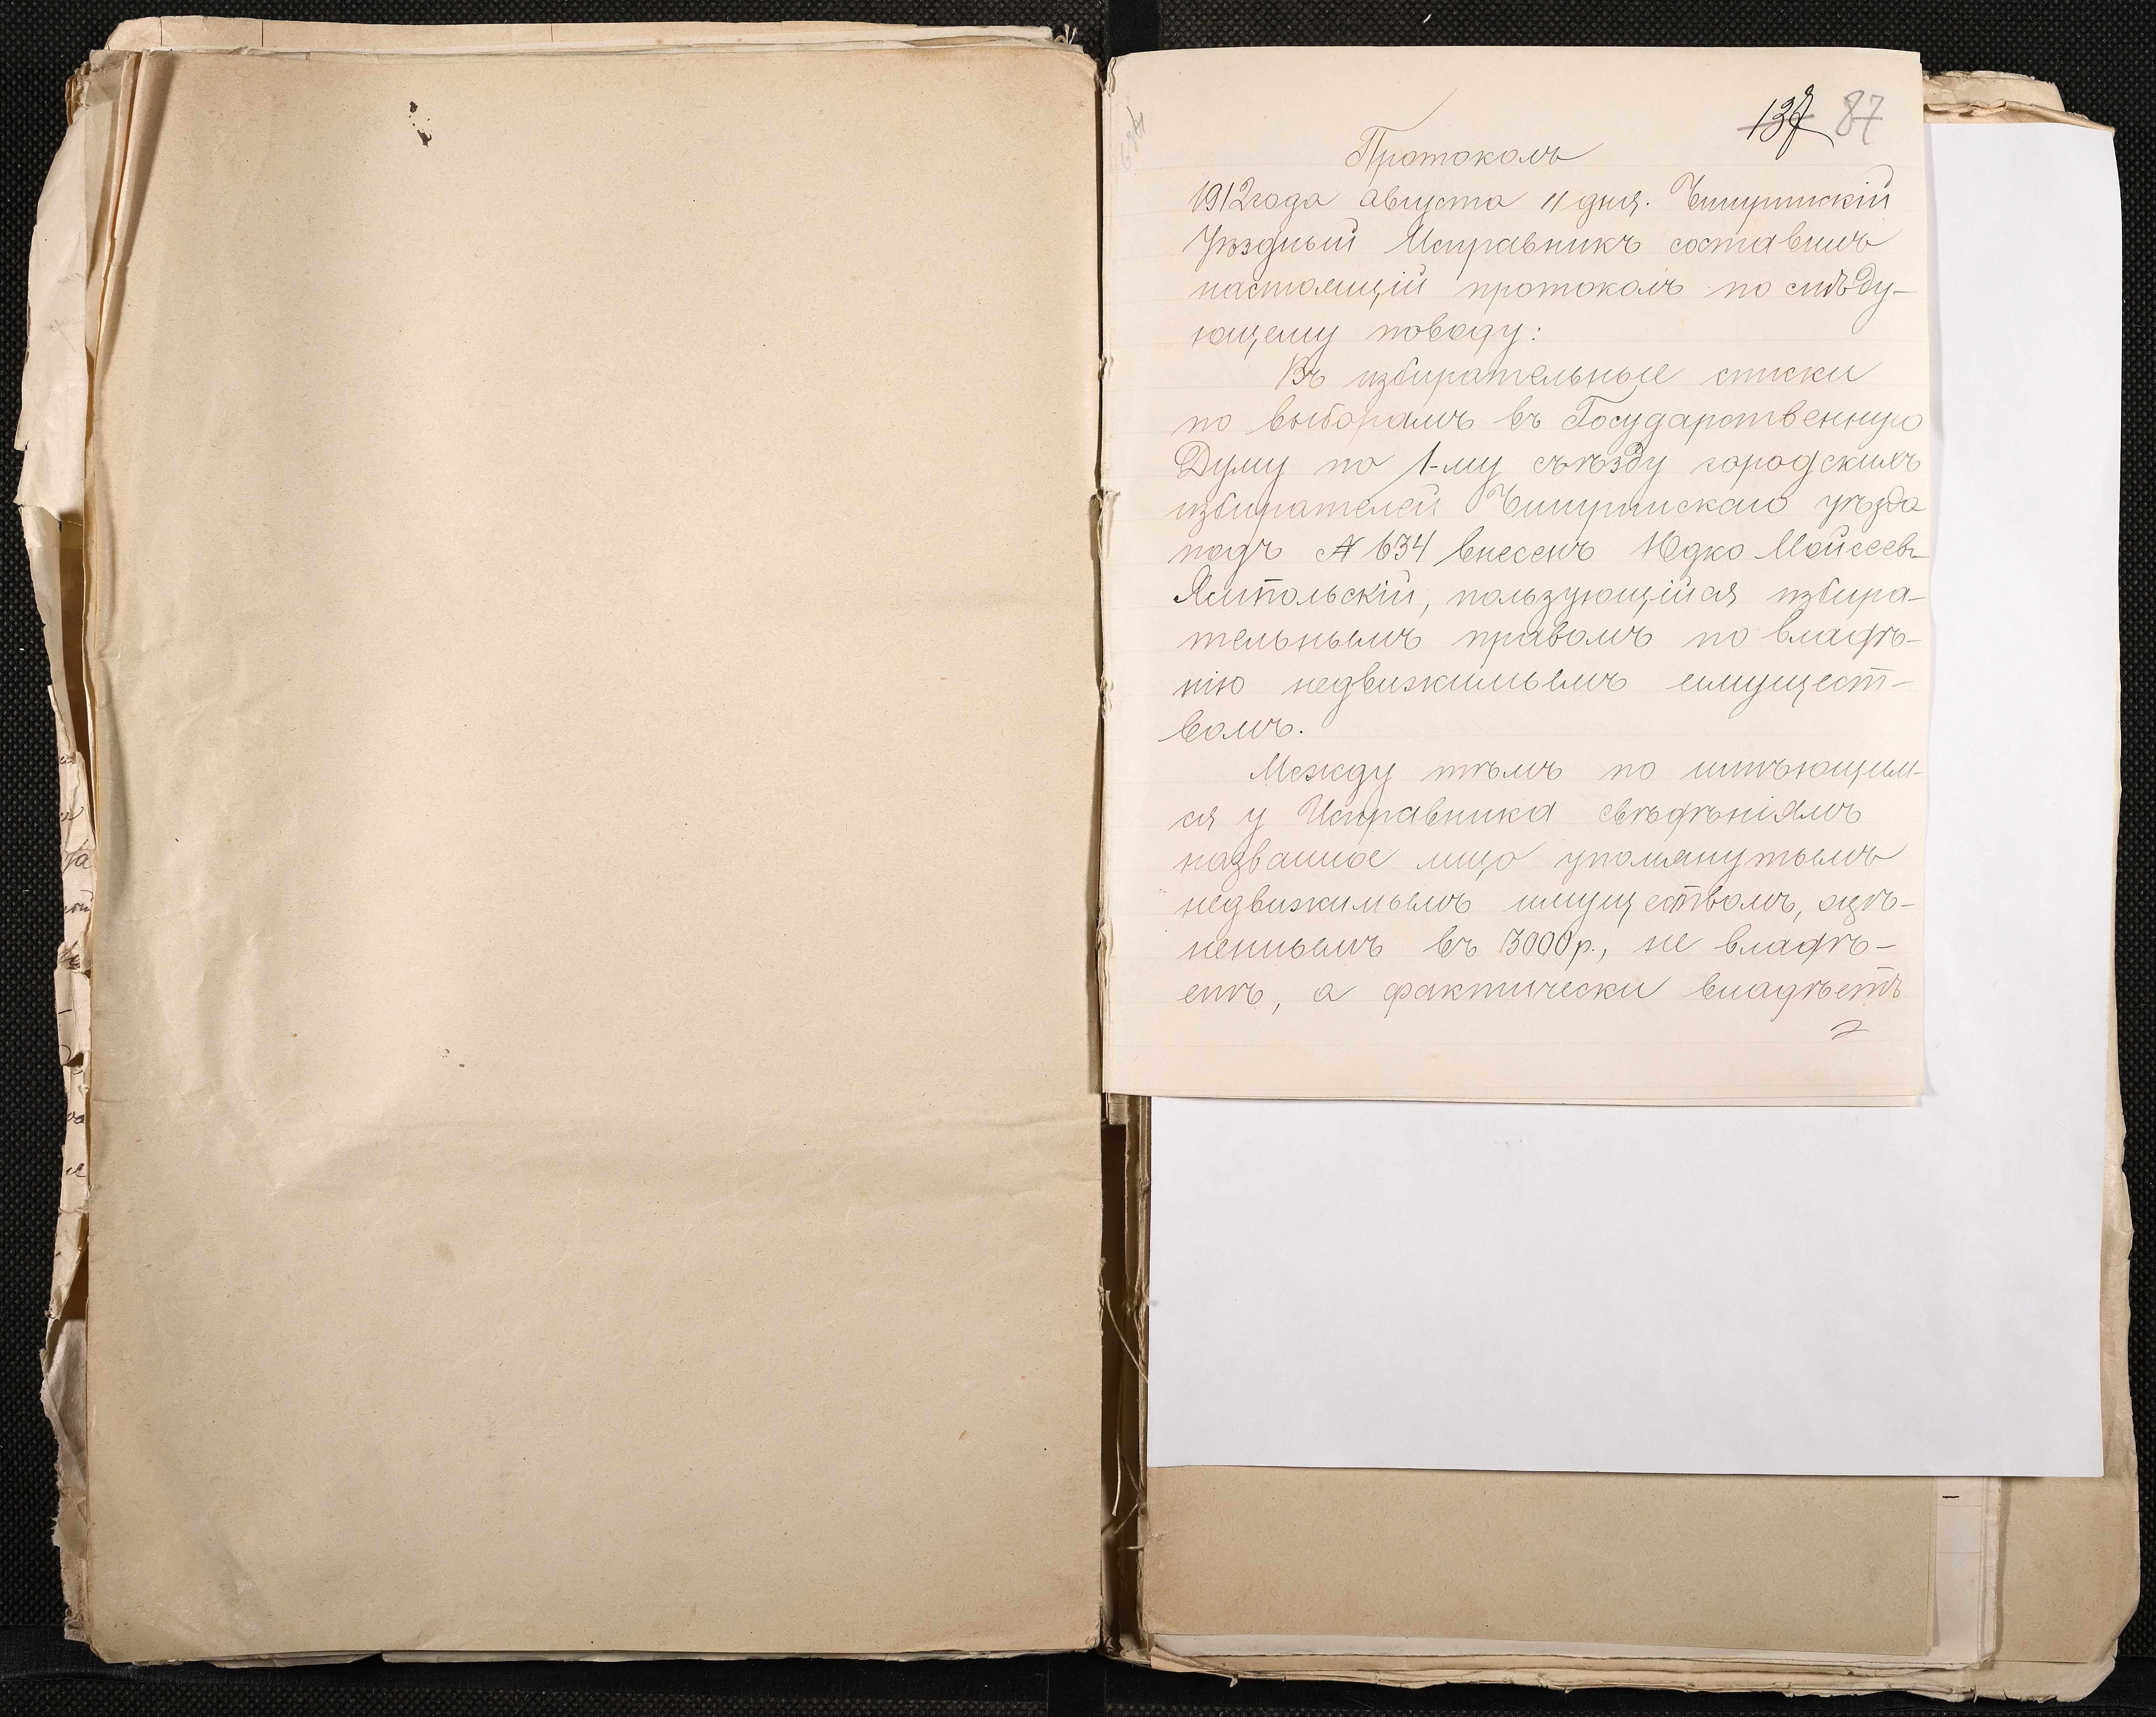 137 87
Протоколъ
1912 года августа 11 дня. Чигиринскій
Уѣздный Исправникъ составилъ
настоящій протоколъ по слѣду-
ющему поводу:
Въ избирательные списки
по выборамъ въ Государственную
Думу по 1-му съѣзду городскихъ
избирателей Чигиринскаго уѣзда
подъ № 634 внесенъ Юдко Мойсеев
Ямпольскій, пользующійся избира-
тельнымъ правомъ по владѣ-
нію недвижимымъ имущест-
вомъ.
Между тѣмъ по имѣющим-
ся у Исправника свѣдѣніямъ
названное лицо упомянутымъ
недвижимымъ имуществомъ, оцѣ-
неннымъ въ 3000 р., не владѣ-
етъ, а фактически владѣетъ